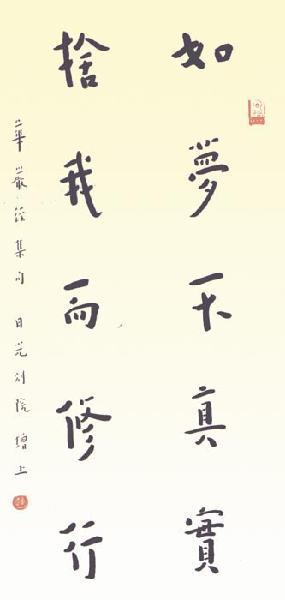 如夢不真實
捨我而修行
華嚴經集句 日光別院 贈上